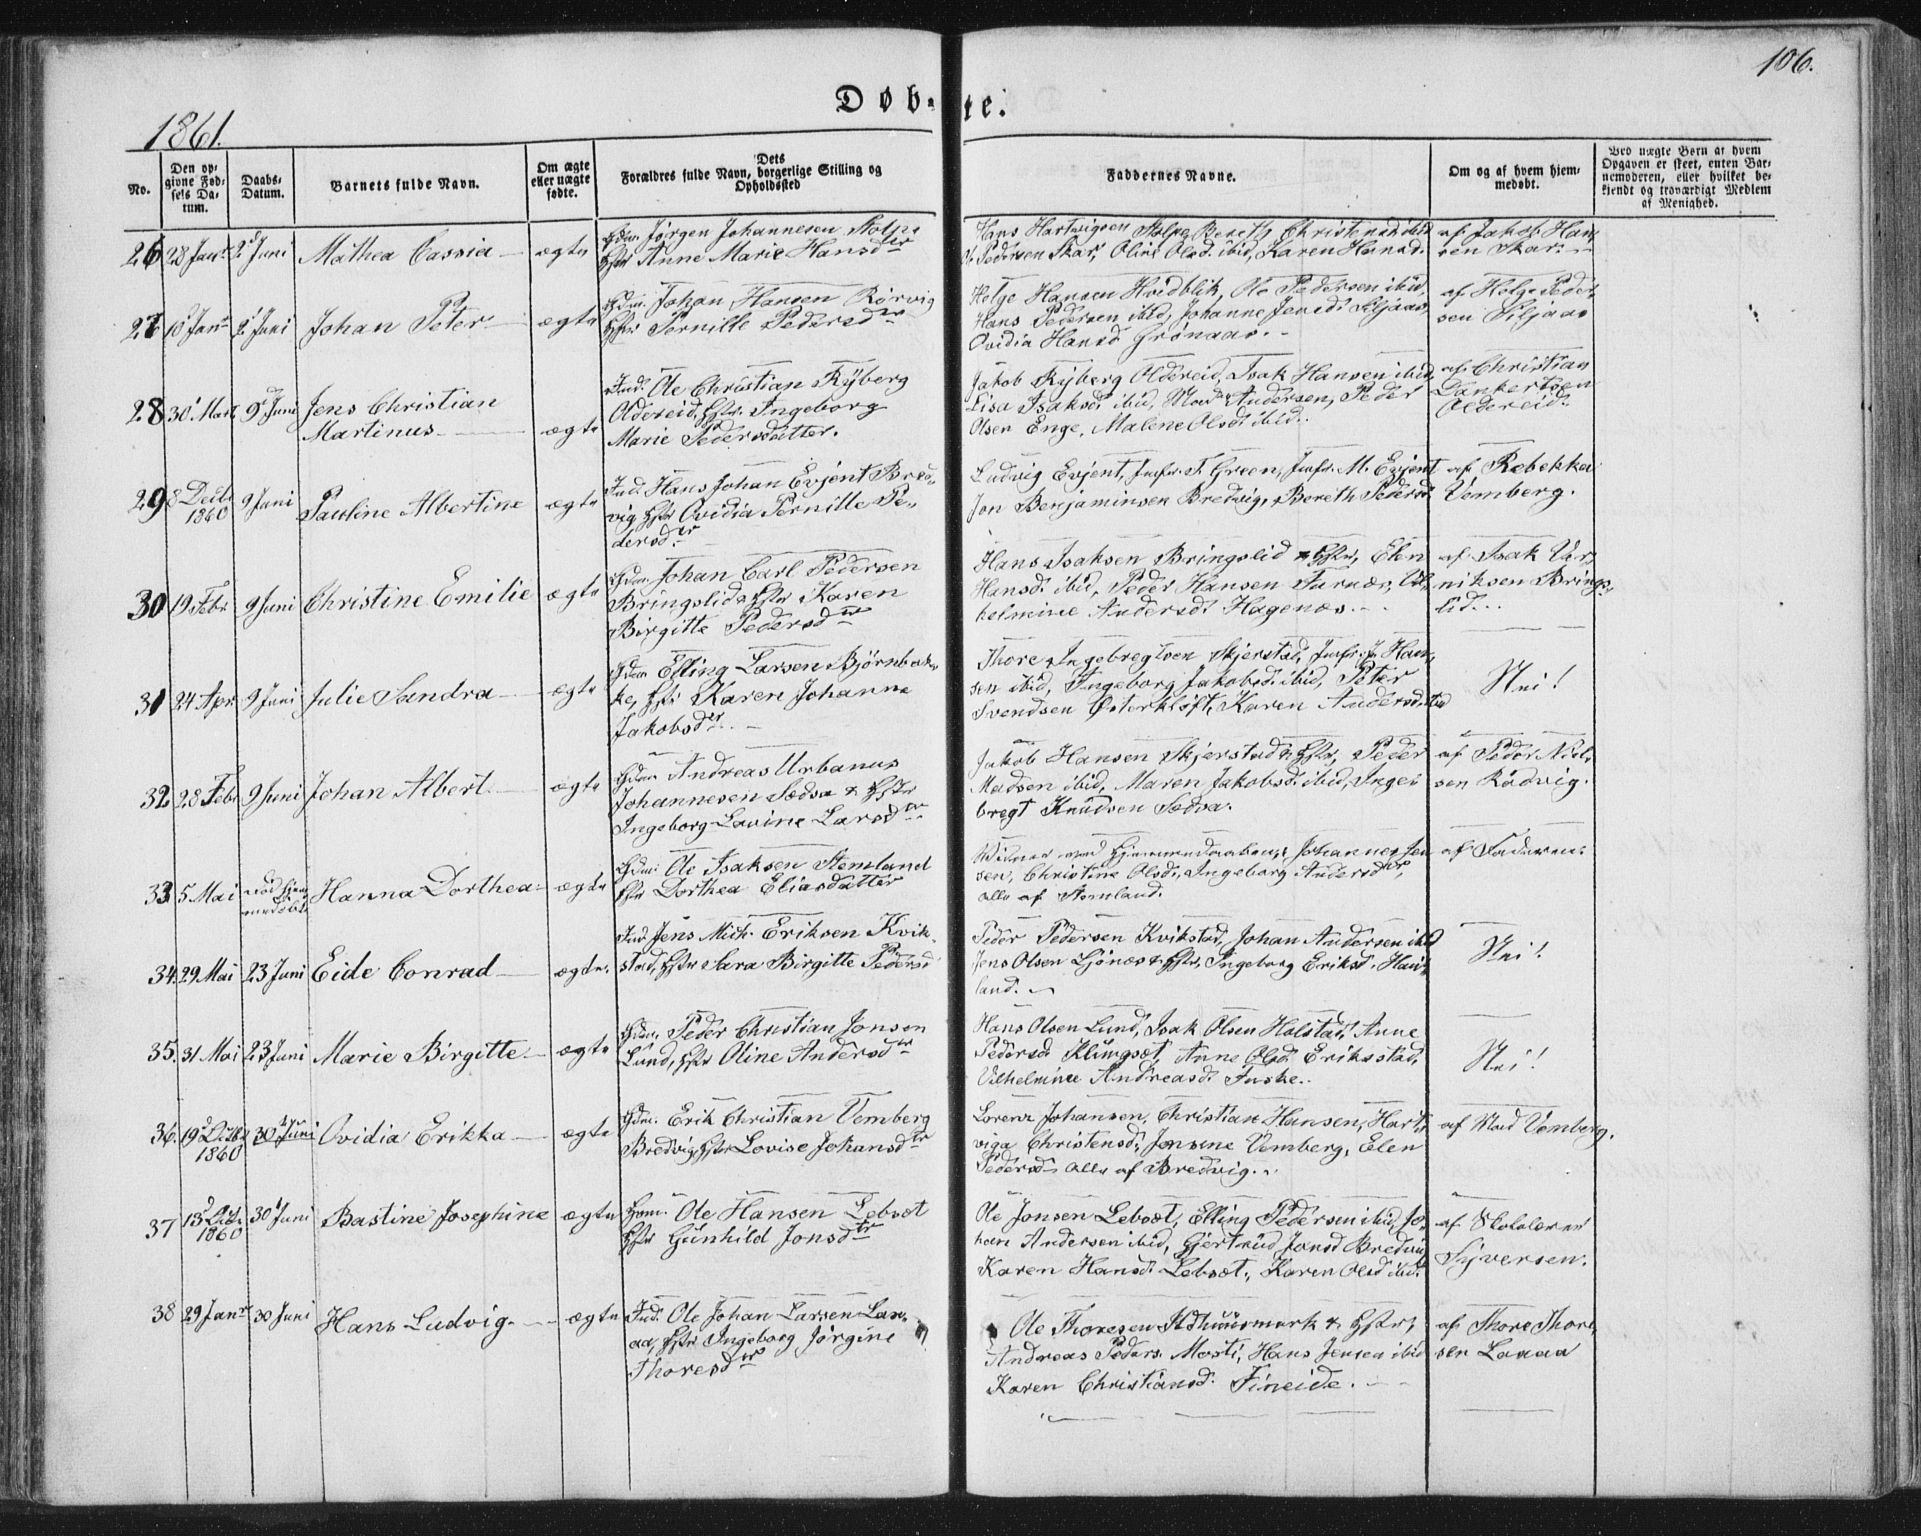 106.
Døb- te.
1861.
No.
Den op-
givne Fød-
sels Da-
tum.
Daabs-
Datum.
Barnets fulde Navn.
Om ægte
eller uægte
fødte.
Dets
Forældres fulde Navn, borgerlige Stilling og
Opholdssted
Faddernes Navne.
Om og af hvem hjem-
medøbt.
Ved uægte Børn at hvem
Opgaven er skeet, enten Bar-
nemoderen, eller hvilket be-
kjendt og troværdigt Medlem
af Menighed.
26 28 Janr 2 Juni Mathea Cassia ægte
Gdm. Jørgen Johannesen Stolpe
Hstr Anne Marie Hansdtr
Hans Hartvigsen Stolpe, Bereth Christensd ibid
Pedersen Skar, Oline Olsd. ibid, Karen Hansd.
af Jakob Han-
sen Skar
27 10 Janr 2 Juni Johan Peter ægte
Gdm. Johan Hansen Rørvig
Hstr Pernille Pedersdtr
Helge Hansen Hvidblik, Ole Pedersen ibid,
Hans Pedersen ibid, Johanne Jensd. Siljaas,
Ovidia Hansd Grønaas.
af Helge Peder-
sen Siljaas
28 30 Mart 9 Juni Jens Christian
Martinus ægte
Ind. Ole Christian Ryberg
Oldereid, Hstr. Ingeborg
Marie Pedersdatter.
Jakob Ryberg Oldereid, Isak Hansen ibid,
Lisa Isaksd. ibid, Mad Andersen, Peder
Olsen Enge, Malene Olsd. ibid.
af Christian
Dankertsen
Oldereid.
29 8 Decb 1860 9 Juni Pauline Albertine ægte
Ind. Hans Johan Evjent Bred-
vig, Hstr Ovidia Pernille Pe-
dersdtr
Ludvig Evjent, Jmfr. T. Green, Jmfr. M. Evjent
Jon Benjaminsen Bredvig, Bereth Pedersd.
af Rebekka
Vemberg.
30 19 Febr 9 Juni Christine Emilie ægte
Gdm. Johan Carl Pedersen
Bringslid & Hstr Karen
Birgitte Pedersdtr
Hans Isaksen Bringslid & Hstr, Elen
Hansd. ibid, Peder Hansen Furnæs, Vil-
helmine Andersd. Hagenæs.
af Isak
niksen Brings-
lid.
31 24 Apr. 9 Juni Julie Sandra ægte
Gdm Elling Larsen Bjørnbak-
ke, Hstr Karen Johanna
Jakobsdtr
Thore Ingebregtsen Skjerstad, Jmfr. J. Han-
sen ibid, Ingeborg Jakobsd. ibid, Peter
Svendsen Østerkløft, Karen Andersd. ibid
Nei!
32 28 Febr 9 Juni Johan Albert ægte
Gdm. Andreas Urbanus
Johannesen Sædva & Hstr
Ingeborg Lavine Larsdtr
Jakob Hansen Skjerstad & Hstr, Peder
Madsen ibid, Maren Jakobsd. ibid, Inge-
bregt Knudsen Sædva.
af Peder Niel-
sen Rødvig.
33 5 Mai Hanna Dorthea ægte
Gdm. Ole Isaksen Stemland
Hstr Dorthea Eliasdatter
Vidner ved Hjemmedaaben, Johannes
sen, Christine Olsd., Ingeborg Andersdtr,
alle af Stemland.
af Faderen.
34. 29 Mai 23 Juni Eide Conrad ægte.
Ind Jens Mich. Eriksen Kvik-
stad, Hstr Sara Birgitte Pedersd
Peder Pedersen Kvikstad, Johan Andersen ibid
Jens Olsen Ljønes & Hstr, Ingeborg Eriksd. Hau-
land.
Nei!
35. 31 Mai 23 Juni Marie Birgitte ægte
Gdm. Peder Christian Jonsen
Lund, Hstr Oline Andersdtr
Hans Olsen Lund, Isak Olsen Halstad, Anne
Pedersd. Klungset, Anne Olsd. Eriksstad,
Vilhelmine Andreasd. Fuske.
Nei!
36. 19 Decbr 1860 30 Juni Ovidia Erikka ægte
Gdm. Erik Christian Vemberg
Bredvig, Hstr Lovise Johansdtr
Lorenz Johansen, Christian Hansen, Hart-
viga Christensd., Jensine Vemberg, Elen
Pedersd. alle af Bredvig.
af Mad Vemberg.
37 13 1860 30 Juni Bastine Josephine ægte
Hsm. Ole Hansen Lebset
Hstr Gunhild Jonsdtr
Ole Jonsen Lebset, Elling Pedersen ibid, Jo-
han Andersen ibid, Gjertrud Jonsd Bredvig
Karen Hansd. Lebset, Karen Olsd ibid.
af Skolelærer
Syversen.
38 29 Janr 30 Juni Hans Ludvig. ægte
Ind. Ole Johan Larsen Laa-
aa, Hstr Ingeborg Jørgine
Thoresdtr
Ole Thoresen Udhuusmark & Hstr,
Andreas Peders. Mosti, Hans Jensen ibid
Karen Christiansd. Fineide.
af Thore Thore-
sen Laaaa